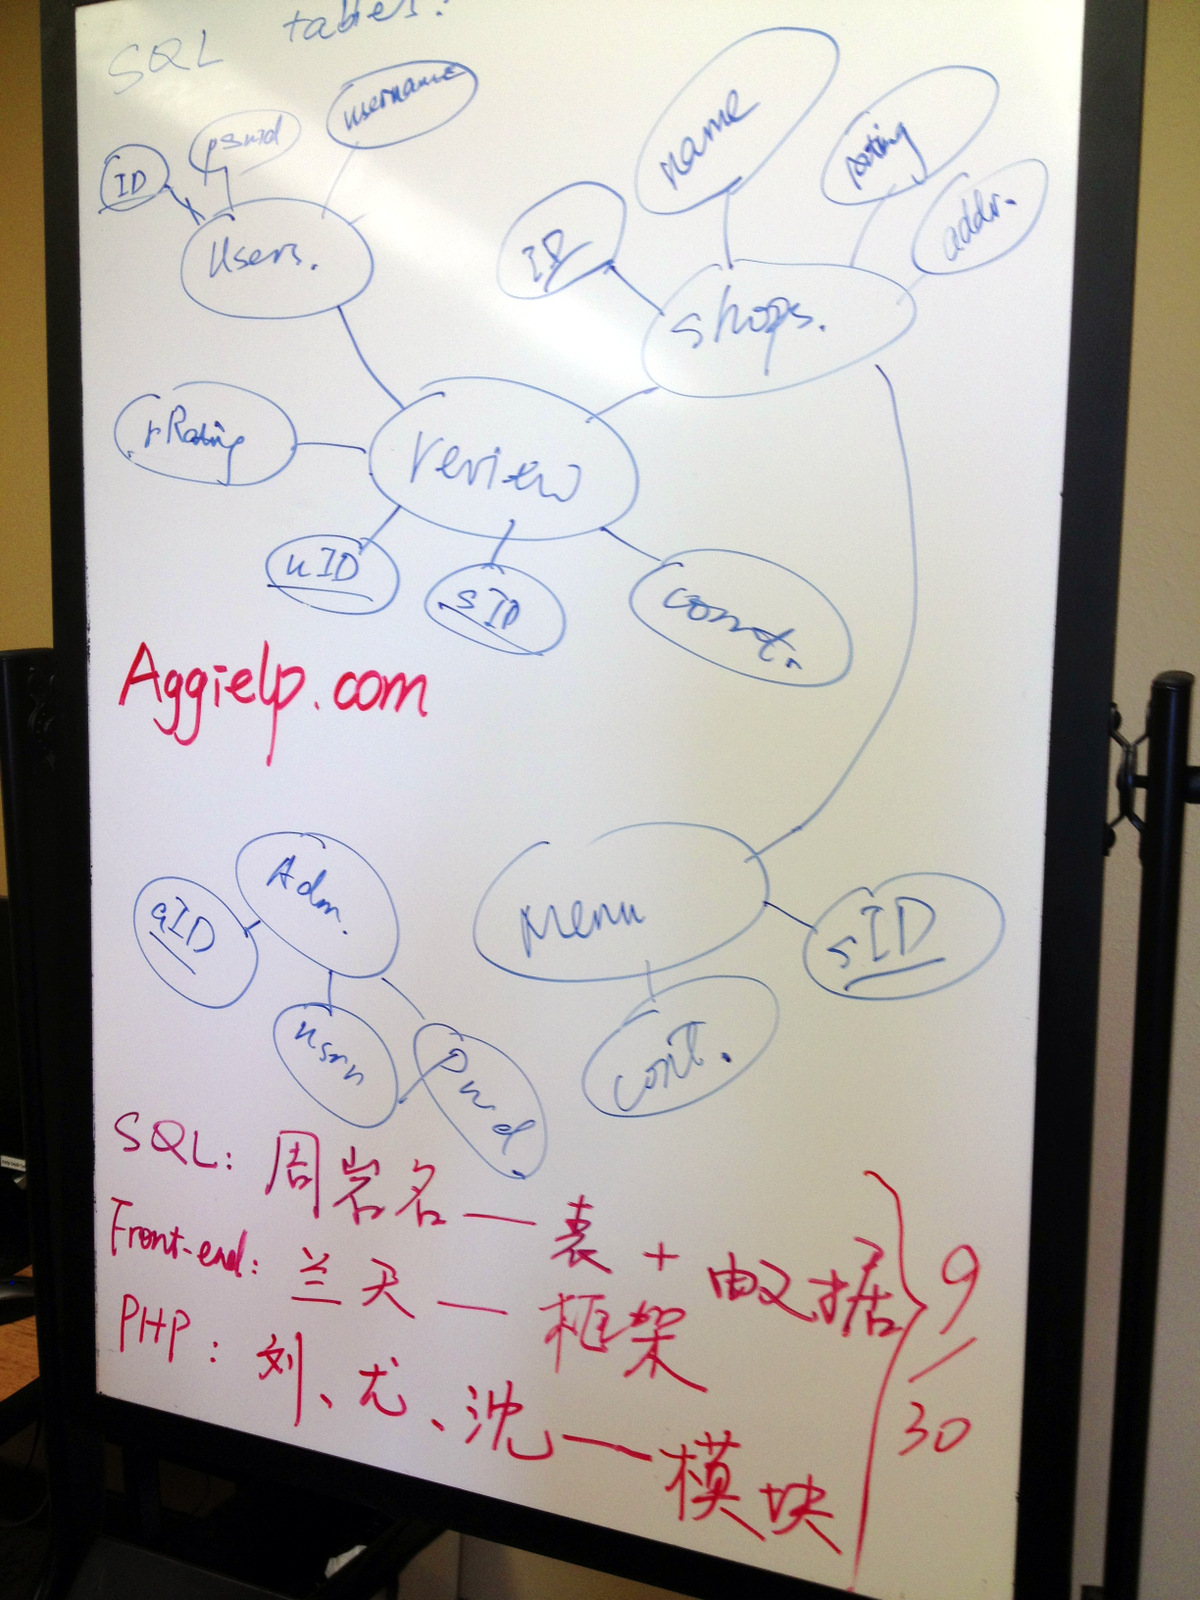 SQL tables:
ID
pswd
username
Users.
ID
name
rating
addr.
shops.
rRating
review
uID
sID
comt.
Aggielp.com
Adm.
aID
usrn
pwd
menu
sID
cont.
SQL: 周岩名 — 表 + 数据
Front-end: 兰天 — 框架
PHP: 刘、尤、沈 — 模块
9/30